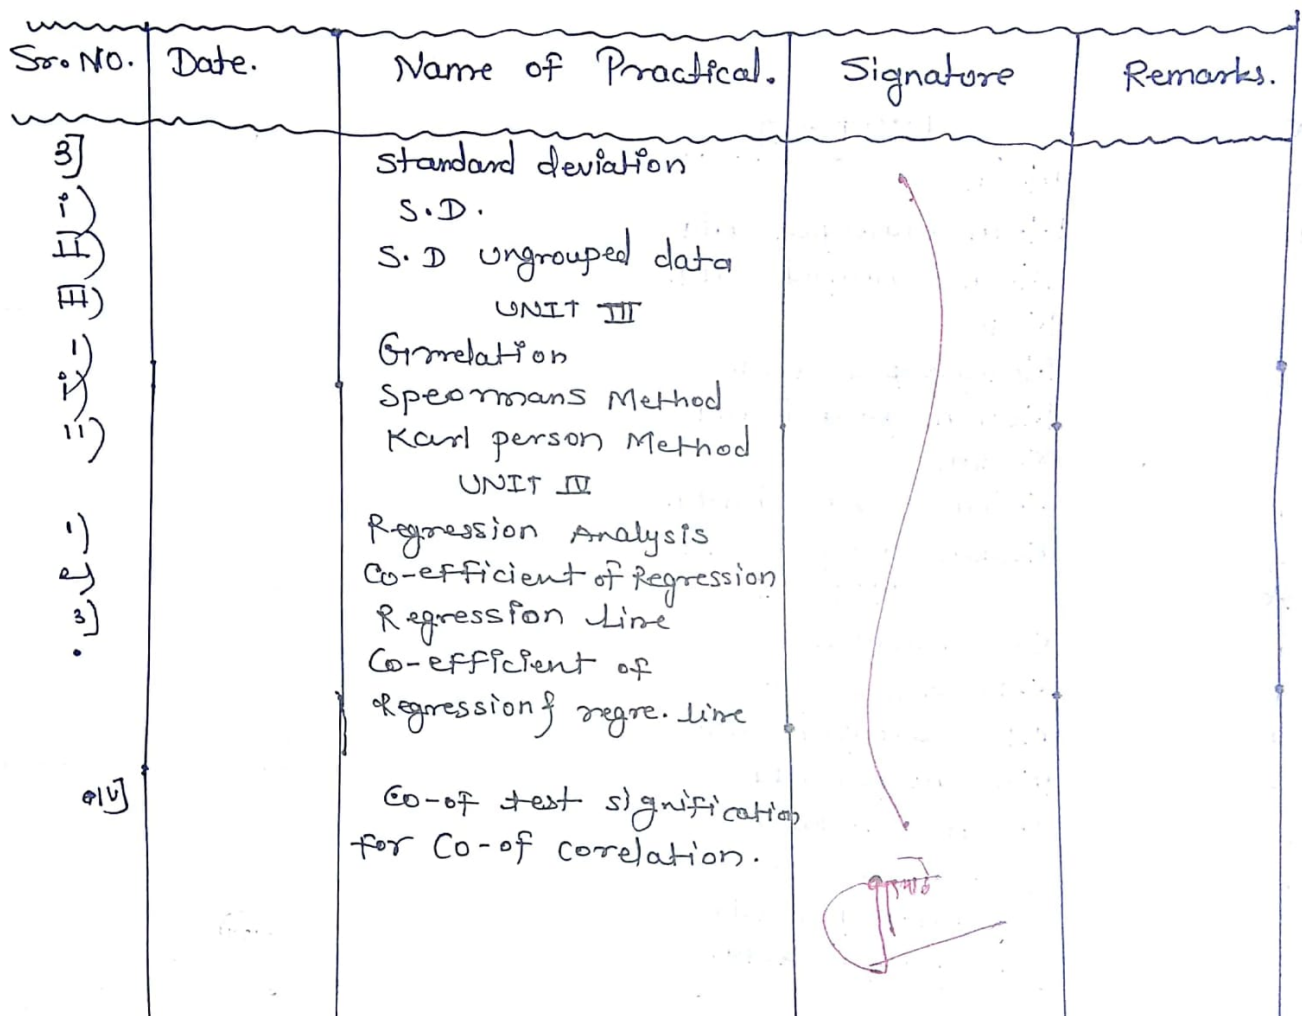 Sr. NO. Date. Name of Practical. Signature Remarks.
3] Standard deviation
i) S.D.
II) S.D ungrouped data
III) UNIT III
1) Correlation
i) Speormans Method
11) Karl person Method
UNIT IV
1) Regression Analysis
2) Co-efficient of Regression
3] Regression line
Co-efficient of
Regression & regre. line
IV] Co-of test signification
for Co-of corelation.